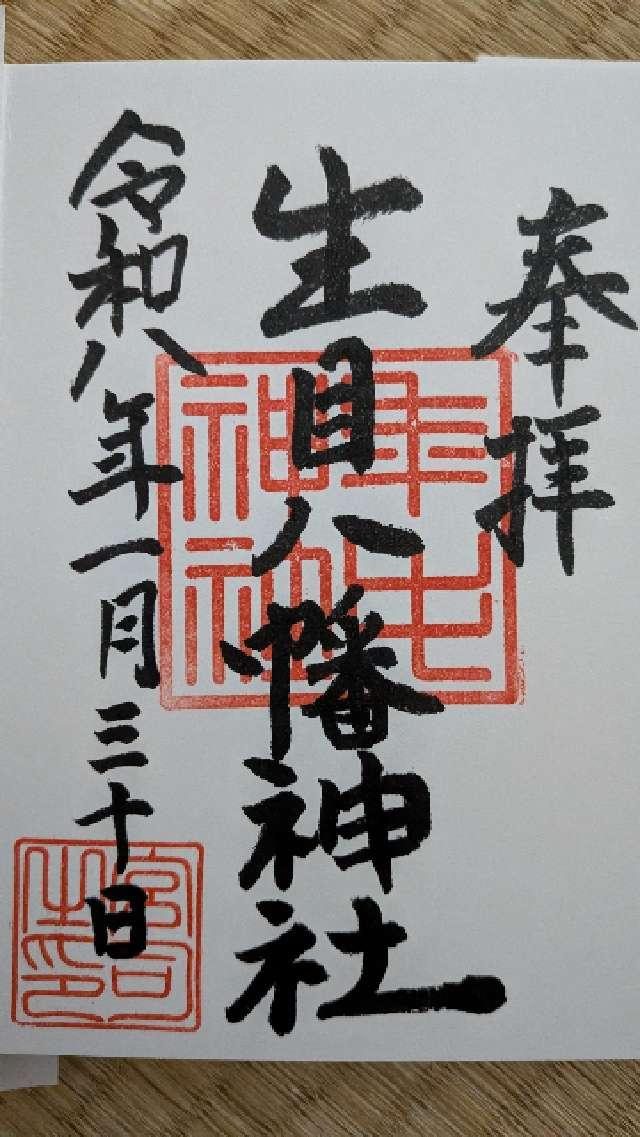 奉拝
生目八幡神社
令和八年一月三十日
宮司之印